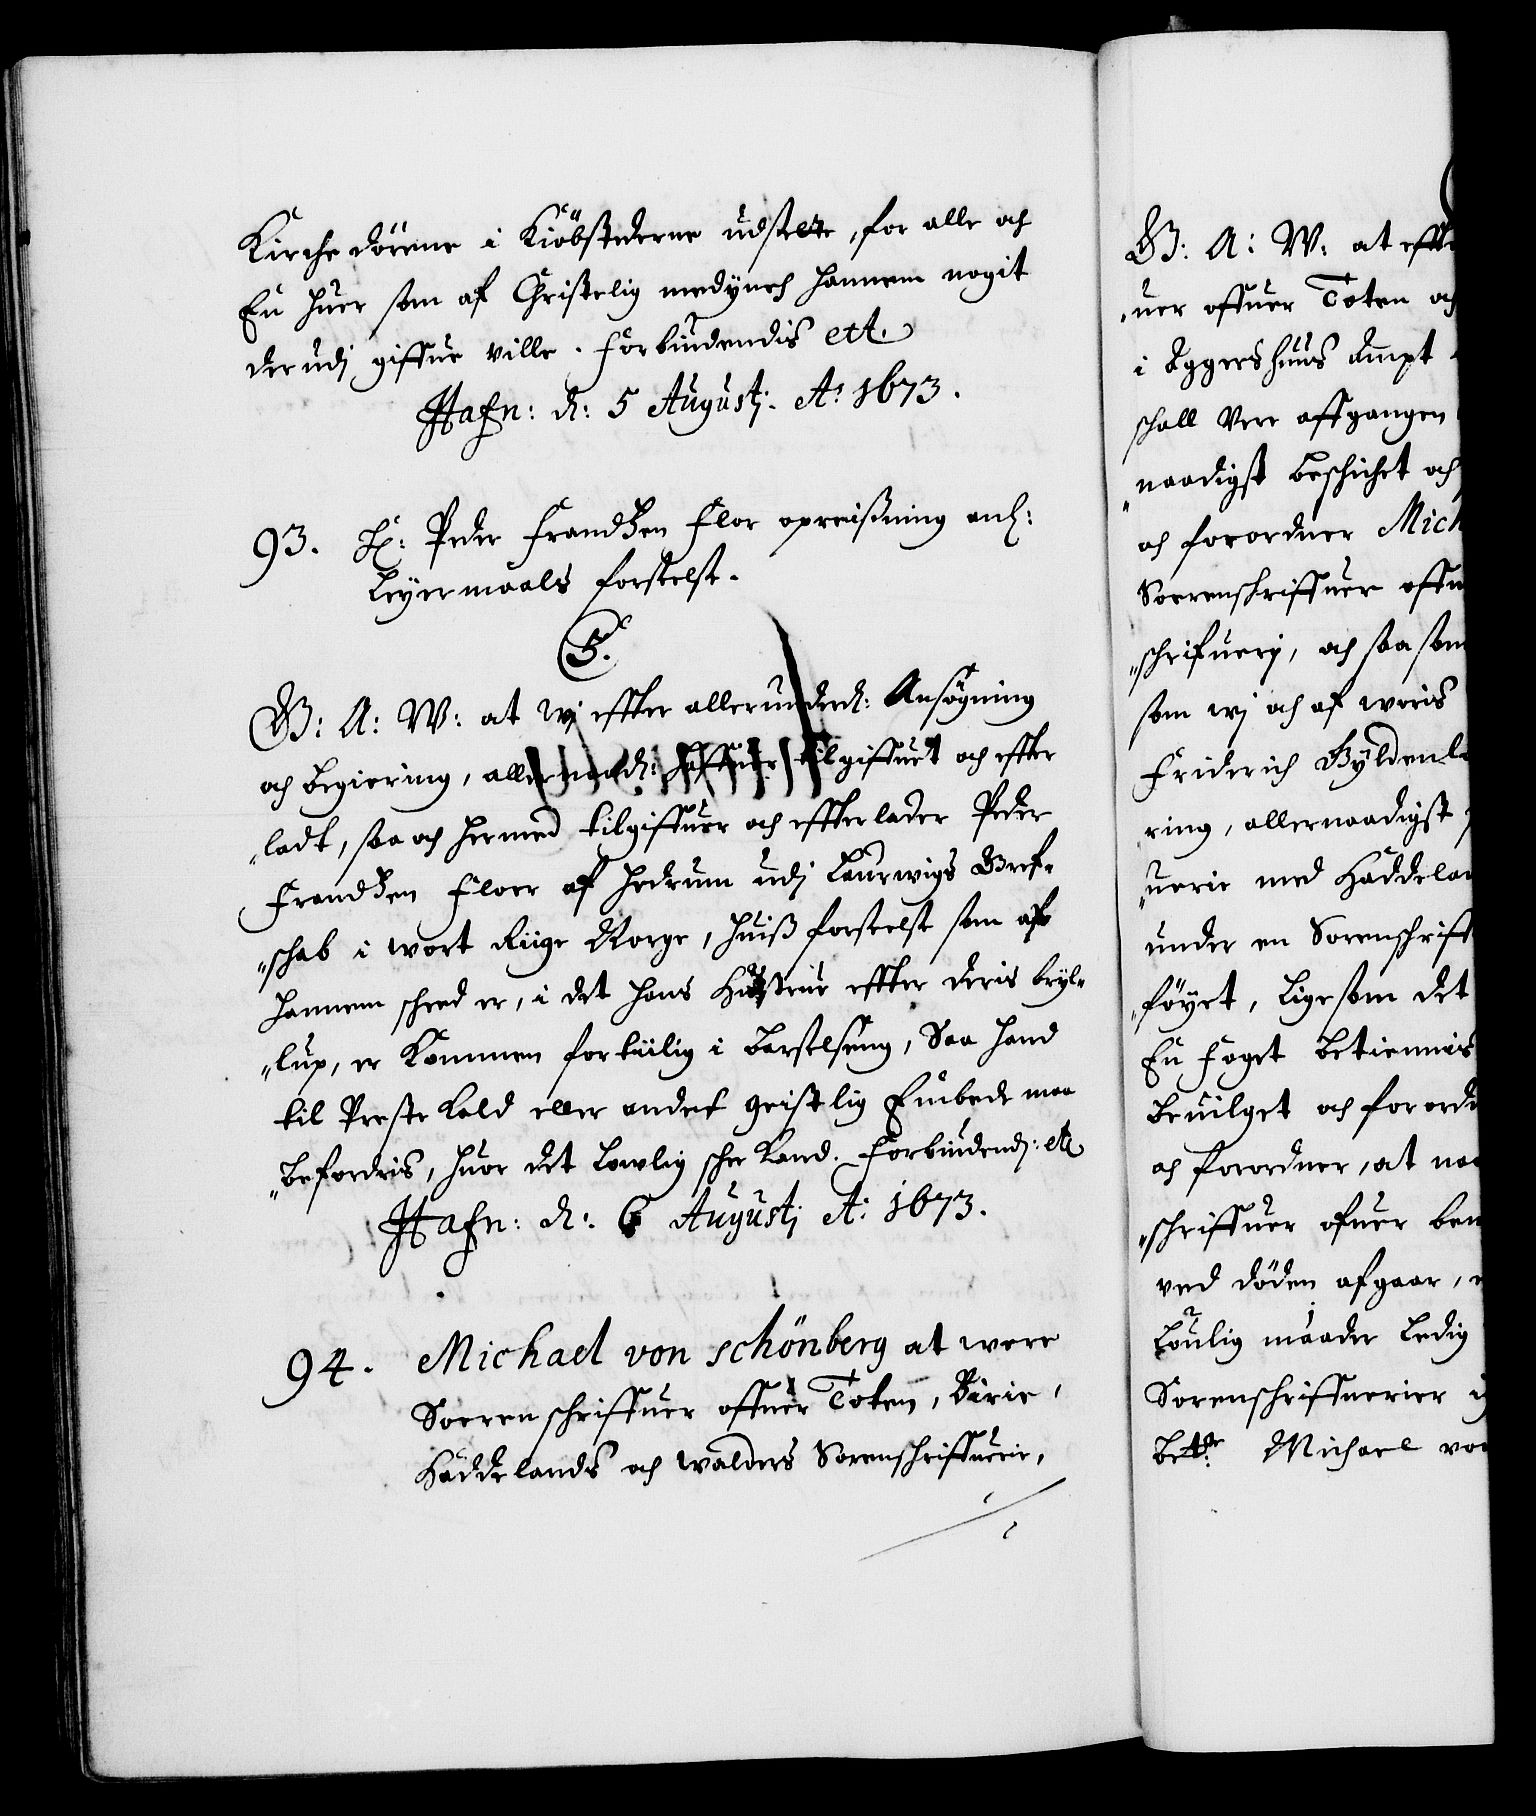 Kirche dörrene i Kiöbstederne udstelte, for alle och
En huer som af Christelig medÿnch hannem nogit
der udj giffue ville. Forbiudendis ett.
Hafn: d: 5 Augustj. A: 1673.
93. Hr: Peder Frandtzen Flor opreißning anl:
Leÿermaals forseelse.
C5.
G: A: W: at wj effter allerunderd: Ansögning
och begiering, allernaad: haffuer tilgiffuet och effter
„ladt, saa och hermed tilgiffuer och effterlader Peder
Frandtzen Floer af Hedrum udj Laurwigs Gref-
„schab i wort Riige Norge, huiß forseelse som af
hannem scheed er, i det hans Hustrue effter deris brÿl-
„lup, er kommen for tiilig i Barselseng, Saa hand
til Preste Kald eller andet geistlig Embede maa
„befordris, huor det lowlig schee kand. Forbiudend: etc
Hafn: d: 6 Augustj A: 1673.
94. Michael von schönberg at were
Soerenschriffuer offuer Toten, Birie,
Haddelands och Walders Sorenschriffuerie,
G: A: W: at effte
„uer offuer Toten och
i Aggershuus Ampt
schall Vere affgangen
„naadigst beschichet och
och forordner Mich
Sorenschriffuer offu
„schrifuerj, och saa som
som wj och af woris
Friderich Gÿldenle
ring, allernaadigst
„uerie med Haddelan
under en Sorenschriff
„föyet, Ligesom det
En Foget betiennis
bevilget och forord
och forordner, at naa
„schriffuer ofuer bem
ved döden afgaar,
Loulig maader Ledig
Sorenschriffuerier
be<sup>te</sup>: Michael von